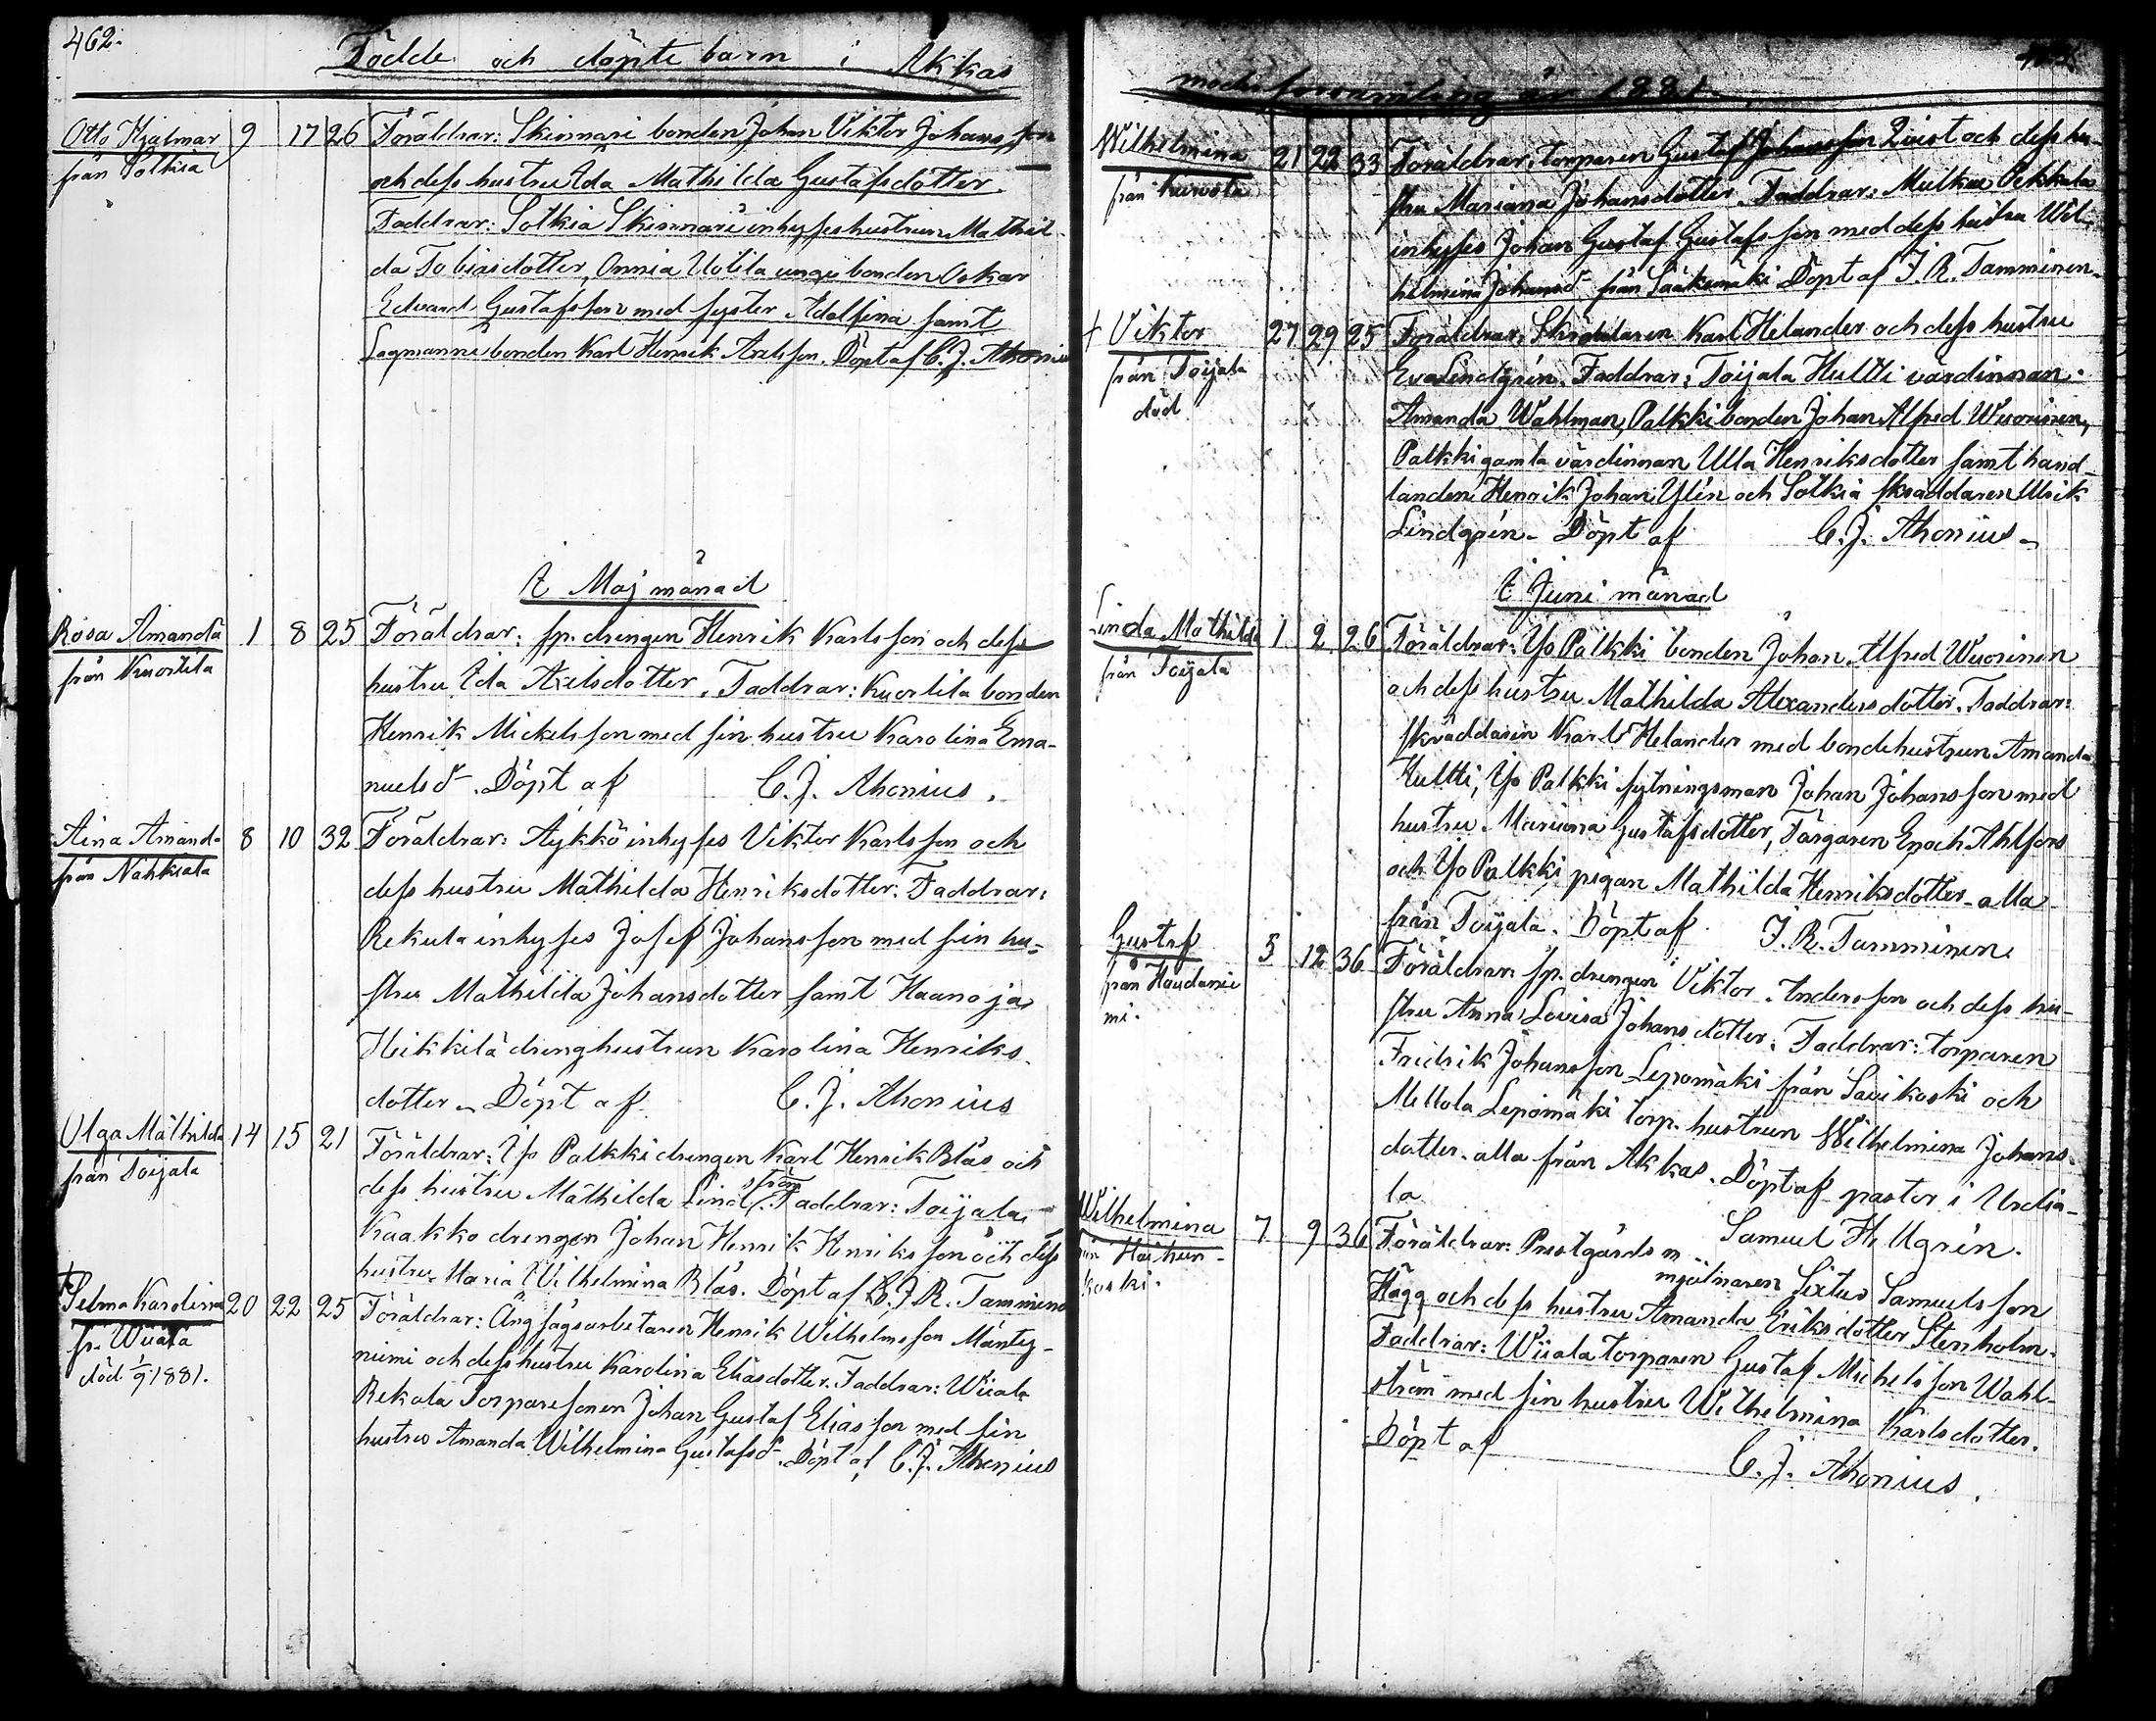 462.
Födde och döpte barn i Akkas
Otto Hjalmar 9 17 26 Föräldrar: Skinnari bonden Johan Viktor Johansson
från Sotkia
och dess hustru Ida Mathilda Gustafsdotter.
Faddrar: Sotkia Skinnari inhyseshustrun Mathil-
da Tobiasdotter, Onnia Uotila unge bonden Oskar
Edvard Gustafsson med syster Adolfina samt
Lagmanni bonden Karl Henrik Axelsson. Döpt af C. J. Ahonius
I Maj månad
Rosa Amanda 1 8 25 Föräldrar: sp. drengen Henrik Karlsson och dess
från Kuorlila
hustru Ida Axelsdotter. Faddrar: Kuorlila bonden
Henrik Mickelsson med sin hustru Karolina Ema-
nuelsd-. Döpt af C. J. Ahonius.
Aina Amanda 8 10 32 Föräldrar: Äykkö inhyses Viktor Karlsson och
från Nahkiala
dess hustru Mathilda Henriksdotter. Faddrar:
Rekula inhyses Josef Johansson med sin hu-
stru Mathilda Johansdotter samt Haanoja
Heikkilä drenghustrun Karolina Henriks
dotter - Döpt af C. J. Ahonius
Olga Mathilda 14 15 21 Föräldrar: Yso Palkki drengen Karl Henrik Blås och
från Toijala
dess hustru Mathilda Lindström. Faddrar: Toijala
Kaakko drengen Johan Henrik Henriksson och dess
hustru Maria Wilhelmina Blås. Döpt af J. R. Tamminen
† Selma Karolina 20 22 25 Föräldrar: Ångsågsarbetaren Henrik Wilhelmsson Mänty-
fr. Wiiala
död 1/9 1881.
niemi och dess hustru Karolina Eliasdotter. Faddrar: Wiiala
Rekola Torparesonen Johan Gustaf Eliasson med sin
hustru Amanda Wilhelmina Gustafsd-. Döpt af C. J. Ahonius
moderförsamling år 1881.
Wilhelmina 21 22 33 Föräldrar: torparen Gustaf Johansson Qvist och dess hu-
från Kurvola
stru Mariana Johansdotter. Faddrar: Pekkala
inhyses Johan Gustaf Gustafsson med dess hustru Wil-
helmina Johansd- från Sääksmäki. Döpt af J. R. Tamminen-
† Viktor 27 29 25 Föräldrar: Skräddaren Karl Helander och dess hustru
från Toijala
död
Eva Lindgrén. Faddrar: Toijala Hultti värdinnan
Amanda Wahlman, Palkki bonden Johan Alfred Wuorinen,
Palkki gamla värdinnan Ulla Henriksdotter samt hand-
landen Henrik Johan Ylén och Sotkia skräddaren Ulrik
Lindgrén - Döpt af C. J. Ahonius -
I Juni månad
Linda Mathilda 1 2 26 Föräldrar: Yso Palkki bonden Johan Alfred Wuorinen
från Toijala
och dess hustru Mathilda Alexandersdotter. Faddrar:
skräddaren Karl Helander med bondehustrun Amanda
Hultti, Yso Palkki sytningsman Johan Johansson med
hustru Mariana Gustafsdotter, Färgaren Enoch Ahlfors
och Yso Palkki pigan Mathilda Henriksdotter - alla
från Toijala. Döpt af J. R. Tamminen.
Gustaf 5 12 36 Föräldrar: sp. drengen Viktor Andersson och dess hu-
från Haudanie
mi.
stru Anna Lovisa Johansdotter. Faddrar: torparen
Fredrik Johansson Lepomäki från Savikoski och
Mellola Lepomäki torp. hustrun Wilhelmina Johans-
dotter. alla från Akkas. Döpt af pastor i Urdia-
la Samuel Hellgrén.
Wilhelmina 7 9 36 Föräldrar: Prestgårds m mjölnaren Sixtus Samuelsson
från Haihun-
koski.
Hägg och dess hustru Amanda Eriksdotter Stenholm.
Faddrar: Wiiala torparen Gustaf Michelsson Wahl-
ström med sin hustru Wilhelmina Karlsdotter.
Döpt af C. J. Ahonius.